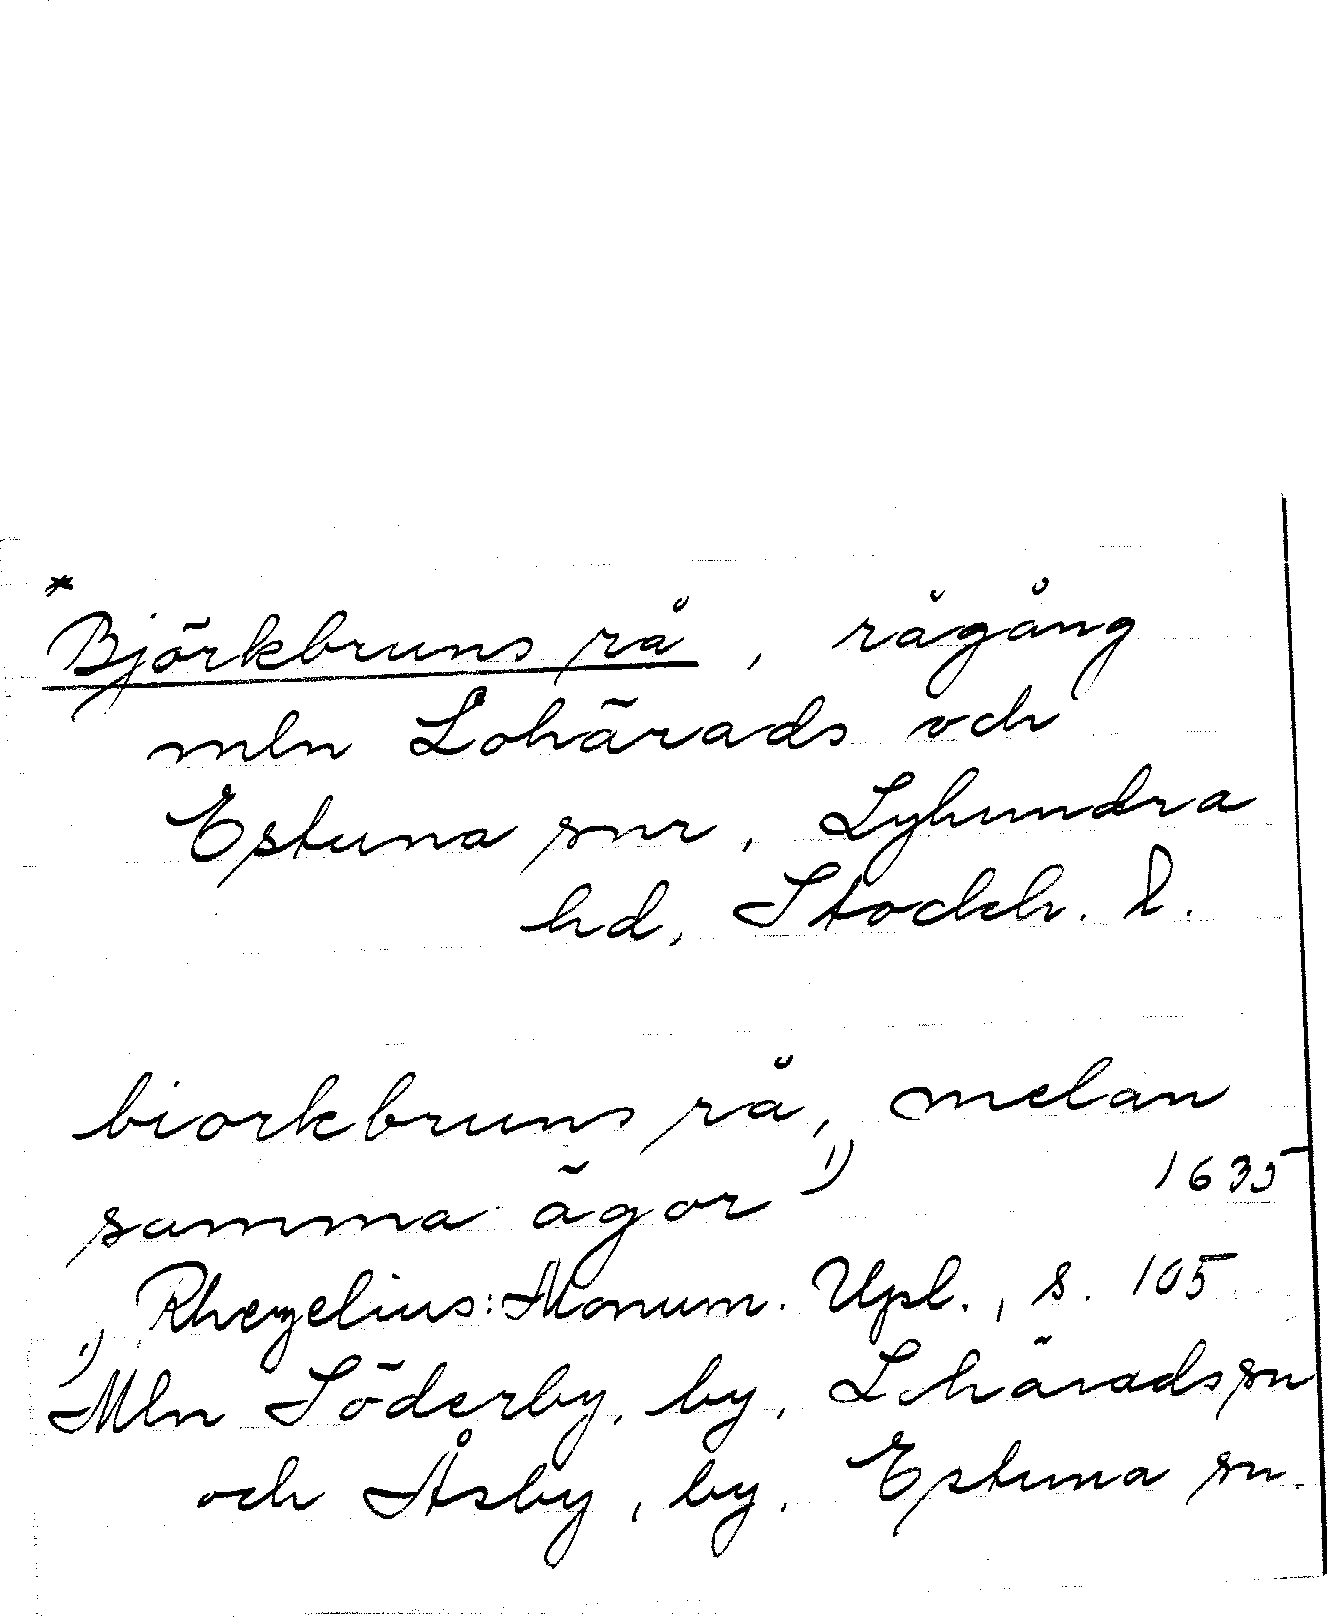 *Björkbruns rå, rågång
mln Lohärads och
Estuna snr, Lyhundra
hd, Stockh. l.
biorkbruns rå, melan
samma ägor 1) 1635
Rhezelius: Monum. Upl., s. 105
1) Mln Söderby, by, Lohärads sn
och Åsby, by, Estuna sn.